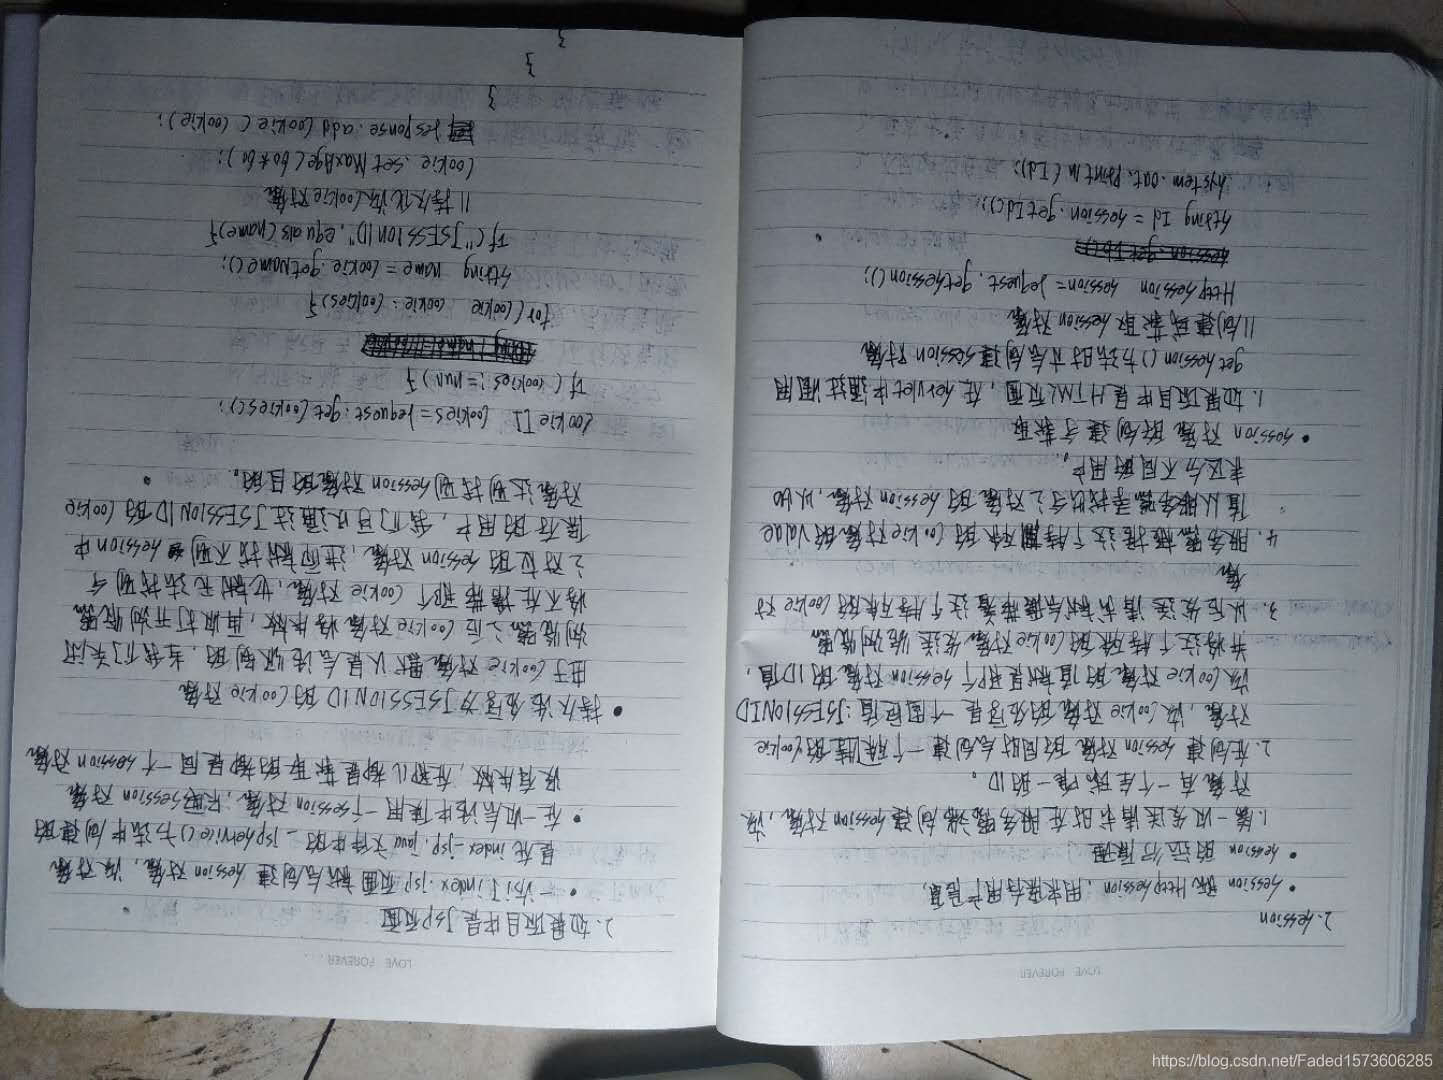 LOVE FOREVER
2. session
• session 既HttpSession，用来保存用户信息，
• session 的运行原理
1. 第一次发送请求时在服务器端创建session对象，该
对象有一个全球唯一的ID。
2. 在创建session对象的同时也创建一个特殊的cookie
对象，该cookie对象的名字是一个固定值:JSESSIONID
该cookie对象的值就是那个session对象的ID值，
并将这个特殊的cookie对象发送给浏览器
3. 以后发送请求时就会携带着这个特殊的cookie对
象
4. 服务器根据这个特殊的cookie对象的value
值从服务器寻找与之对象的session对象，以
来区分不同的用户。
• session对象的创建与获取
1. 如果项目中是HTML页面，在servlet中通过调用
getSession()方法时才会创建session对象
//创建或获取session对象
HttpSession session=request.getSession();
String Id=session.getId();
System.out.println(Id);
LOVE FOREVER...
2. 如果项目中是JSP页面
• 一访问index.jsp页面就会创建session对象，该对象
是在index_jsp.java文件中的_jspService()方法中创建的
• 在一次会话中使用一个session对象，只要session对象
没有失效，在哪儿都是获取的都是同一个session对象
• 持久化名字为JSESSIONID的cookie对象
由于cookie对象默认是会话级别的，当我们关闭
浏览器之后cookie对象将失效，再次打开浏览器
将不在携带那个cookie对象，也就无法找到与
之对应的session对象，进而就找不到session中
保存的用户，我们可以通过JSESSIONID的cookie
对象达到找到session对象的目的。
Cookie[] cookies=request.getCookies();
if(cookies!=null){
for(cookie cookie:cookies){
String name=cookie.getName();
if("JSESSIONID".equals(name){
//持久化该cookie对象
cookie.setMaxAge(60*60);
response.addCookie(cookie);
}
}
}
https://blog.csdn.net/Faded1573606285